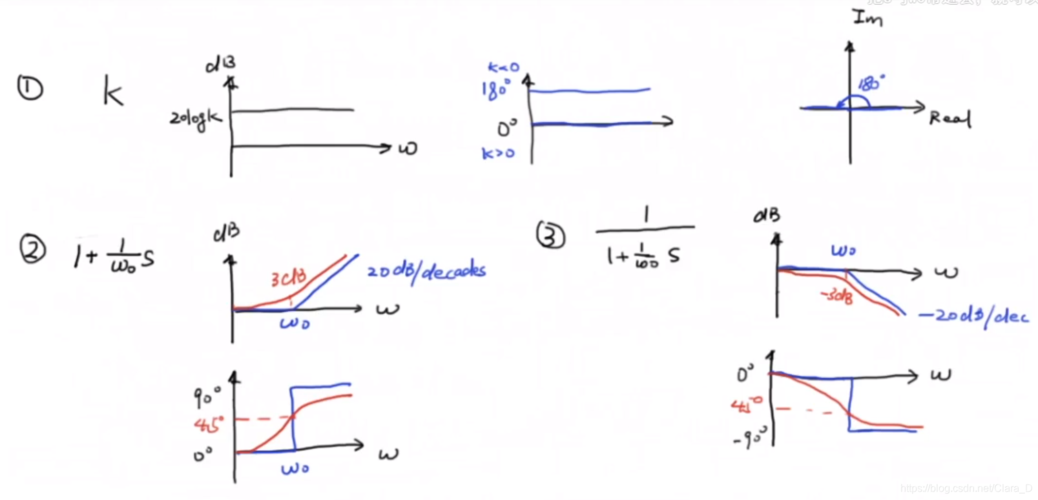 ① K
dB
20logK
ω
K<0
180°
0°
K>0
Im
180°
Real
② 1+ 1/ω₀ S
dB
3dB
20dB/decades
ω₀
ω
90°
45°
0°
ω₀
ω
③ 1/(1+ 1/ω₀ S)
dB
ω₀
ω
-3dB
-20dB/dec
0°
ω
45°
-90°
https://blog.csdn.net/Clare_D